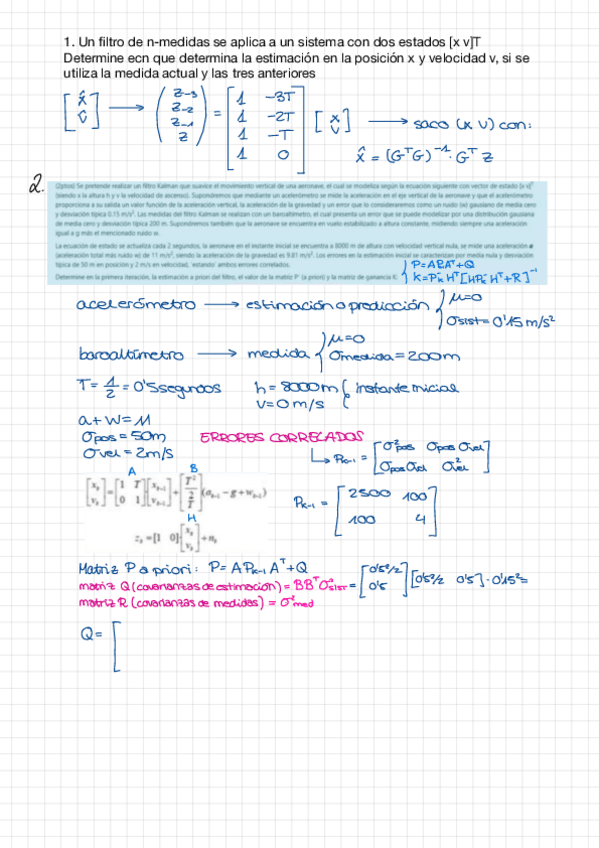 1. Un filtro de n-medidas se aplica a un sistema con dos estados [x v]T
Determine ecn que determina la estimación en la posición x y velocidad v, si se
utiliza la medida actual y las tres anteriores
[x̂ v̂] → (z-3 z-2 z-1 z) = [1 -3T 1 -2T 1 -T 1 0] [x v] → saco (x v) con:
x̂ = (GᵀG)⁻¹ · Gᵀ z
2.
(2ptos) Se pretende realizar un filtro Kalman que suavice el movimiento vertical de una aeronave, el cual se modeliza según la ecuación siguiente con vector de estado [x v]ᵀ
(siendo x la altura h y v la velocidad de ascenso). Supondremos que mediante un acelerómetro se mide la aceleración en el eje vertical de la aeronave y que el acelerómetro
proporciona a su salida un valor función de la aceleración vertical, la aceleración de la gravedad y un error que lo consideraremos como un ruido (w) gaussiano de media cero
y desviación típica 0.15 m/s². Las medidas del filtro Kalman se realizan con un baroaltímetro, el cual presenta un error que se puede modelizar por una distribución gaussiana
de media cero y desviación típica 200 m. Supondremos también que la aeronave se encuentra en vuelo estabilizado a altura constante, midiendo siempre una aceleración
igual a g más el mencionado ruido w.
La ecuación de estado se actualiza cada 2 segundos, la aeronave en el instante inicial se encuentra a 8000 m de altura con velocidad vertical nula, se mide una aceleración a
(aceleración total más ruido w) de 11 m/s², siendo la aceleración de la gravedad es 9.81 m/s². Los errores en la estimación inicial se caracterizan por media nula y desviación
típica de 50 m en posición y 2 m/s en velocidad, estando ambos errores correlados.
Determine en la primera iteración, la estimación a priori del filtro, el valor de la matriz P⁻ (a priori) y la matriz de ganancia K
P=APAᵀ+Q
K=P⁻ₖHᵀ[HP⁻ₖHᵀ+R]⁻¹
acelerómetro → estimación o predicción { μ=0
σsist = 0'15 m/s²
baroaltímetro → medida { μ=0
σmedida = 200m
T = 1/2 = 0'5 segundos h = 8000m
v = 0 m/s } instante inicial
a + w = M
σpos = 50m ERRORES CORRELADOS
σvel = 2m/s ↳ Pk-1 = [σ²pos σpos σvel σpos σvel σ²vel]
A B
[xₖ vₖ] = [1 T 0 1] [xₖ₋₁ vₖ₋₁] + [T²/2 T] (aₖ₋₁ - g + wₖ₋₁)
Pk-1 = [2500 100 100 4]
H
zₖ = [1 0] [xₖ vₖ] + nₖ
Matriz P a priori: P = A Pk-1 Aᵀ + Q
matriz Q (covarianzas de estimación) = BBᵀσ²sist = [0'5²/2 0'5] [0'5²/2 0'5] · 0'15² =
matriz R (covarianzas de medidas) = σ²med
Q = [